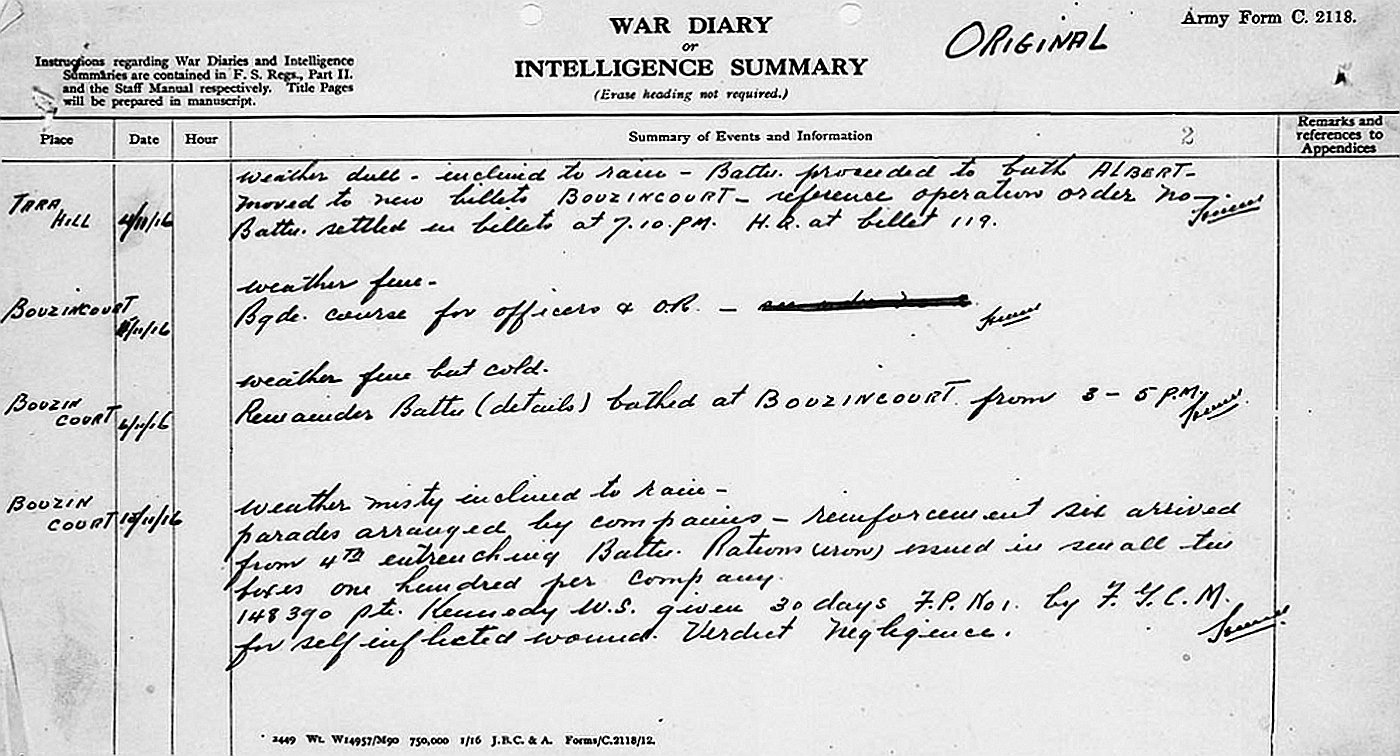 WAR DIARY
or
INTELLIGENCE SUMMARY
(Erase heading not required.)
ORIGINAL
Army Form C. 2118.
Instructions regarding War Diaries and Intelligence
Summaries are contained in F. S. Regs., Part II.
and the Staff Manual respectively. Title Pages
will be prepared in manuscript.
Place Date Hour Summary of Events and Information 2 Remarks and references to Appendices
weather dull - inclined to rain - Battn. proceeded to bath ALBERT -
TARA HILL 4/11/16 moved to new billets BOUZINCOURT - reference operation order no -
Battn. settled in billets at 7.10. P.M. H.Q. at billet 119.
weather fine -
BOUZINCOURT /11/16 Bgde. course for officers & O.R. -
weather fine but cold.
BOUZIN COURT 6/11/16 Remainder Battn (details) bathed at BOUZINCOURT from 3 - 5 P.M.
BOUZIN COURT /11/16 weather misty inclined to rain -
parades arranged by companies - reinforcement six arrived
from 4TH entrenching Battn. Rations (iron) issued in small tin
boxes one hundred per company.
148390 Pte. Kennedy W.S. given 30 days F.P. No 1. by F.G.C.M.
for self inflicted wound. Verdict Negligence.
2449 Wt. W14957/M90 750,000 1/16 J.B.C. & A. Forms/C.2118/12.